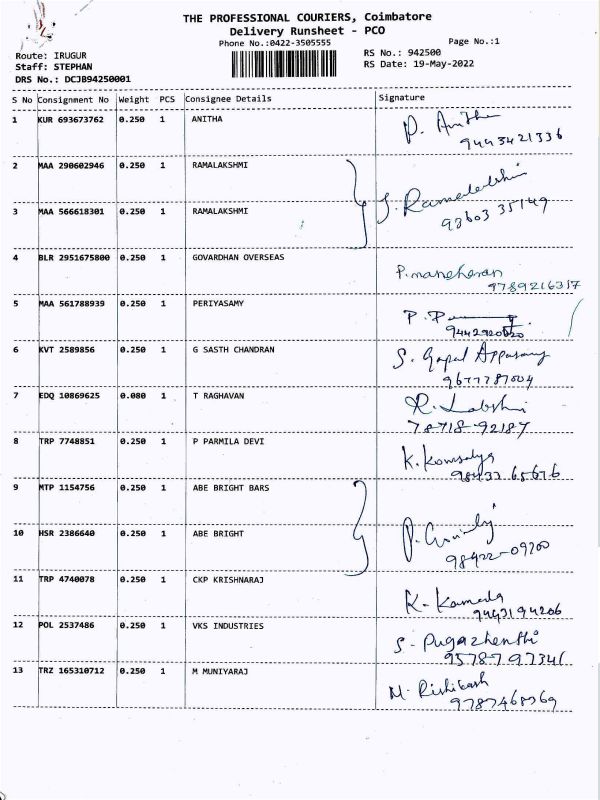 THE PROFESSIONAL COURIERS, Coimbatore
Delivery Runsheet - PCO
Phone No.:0422-3505555
Page No.:1
Route: IRUGUR
RS No.: 942500
Staff: STEPHAN
RS Date: 19-May-2022
DRS No.: DCJB94250001
S No Consignment No Weight PCS Consignee Details Signature
1 KUR 693673762 0.250 1 ANITHA P. Anitha
9443421336
2 MAA 290602946 0.250 1 RAMALAKSHMI
J. Ramalakshmi
3 MAA 566618301 0.250 1 RAMALAKSHMI
93603 35149
4 BLR 2951675800 0.250 1 GOVARDHAN OVERSEAS
P. manoharan
9789216317
5 MAA 561788939 0.250 1 PERIYASAMY
P.
6 KVT 2589856 0.250 1 G SASTH CHANDRAN S. Gopal Appasamy
9677787004
7 EDQ 10869625 0.080 1 T RAGHAVAN R. Lakshmi
78718-92187
8 TRP 7748851 0.250 1 P PARMILA DEVI K. Kowsalya
98433 65676
9 MTP 1154756 0.250 1 ABE BRIGHT BARS
10 HSR 2386640 0.250 1 ABE BRIGHT
98422-09200
11 TRP 4740078 0.250 1 CKP KRISHNARAJ K. Kamala
9443194206
12 POL 2537486 0.250 1 VKS INDUSTRIES S. Pugazhenthi
9578797341
13 TRZ 165310712 0.250 1 M MUNIYARAJ M. Rishikash
9787468369